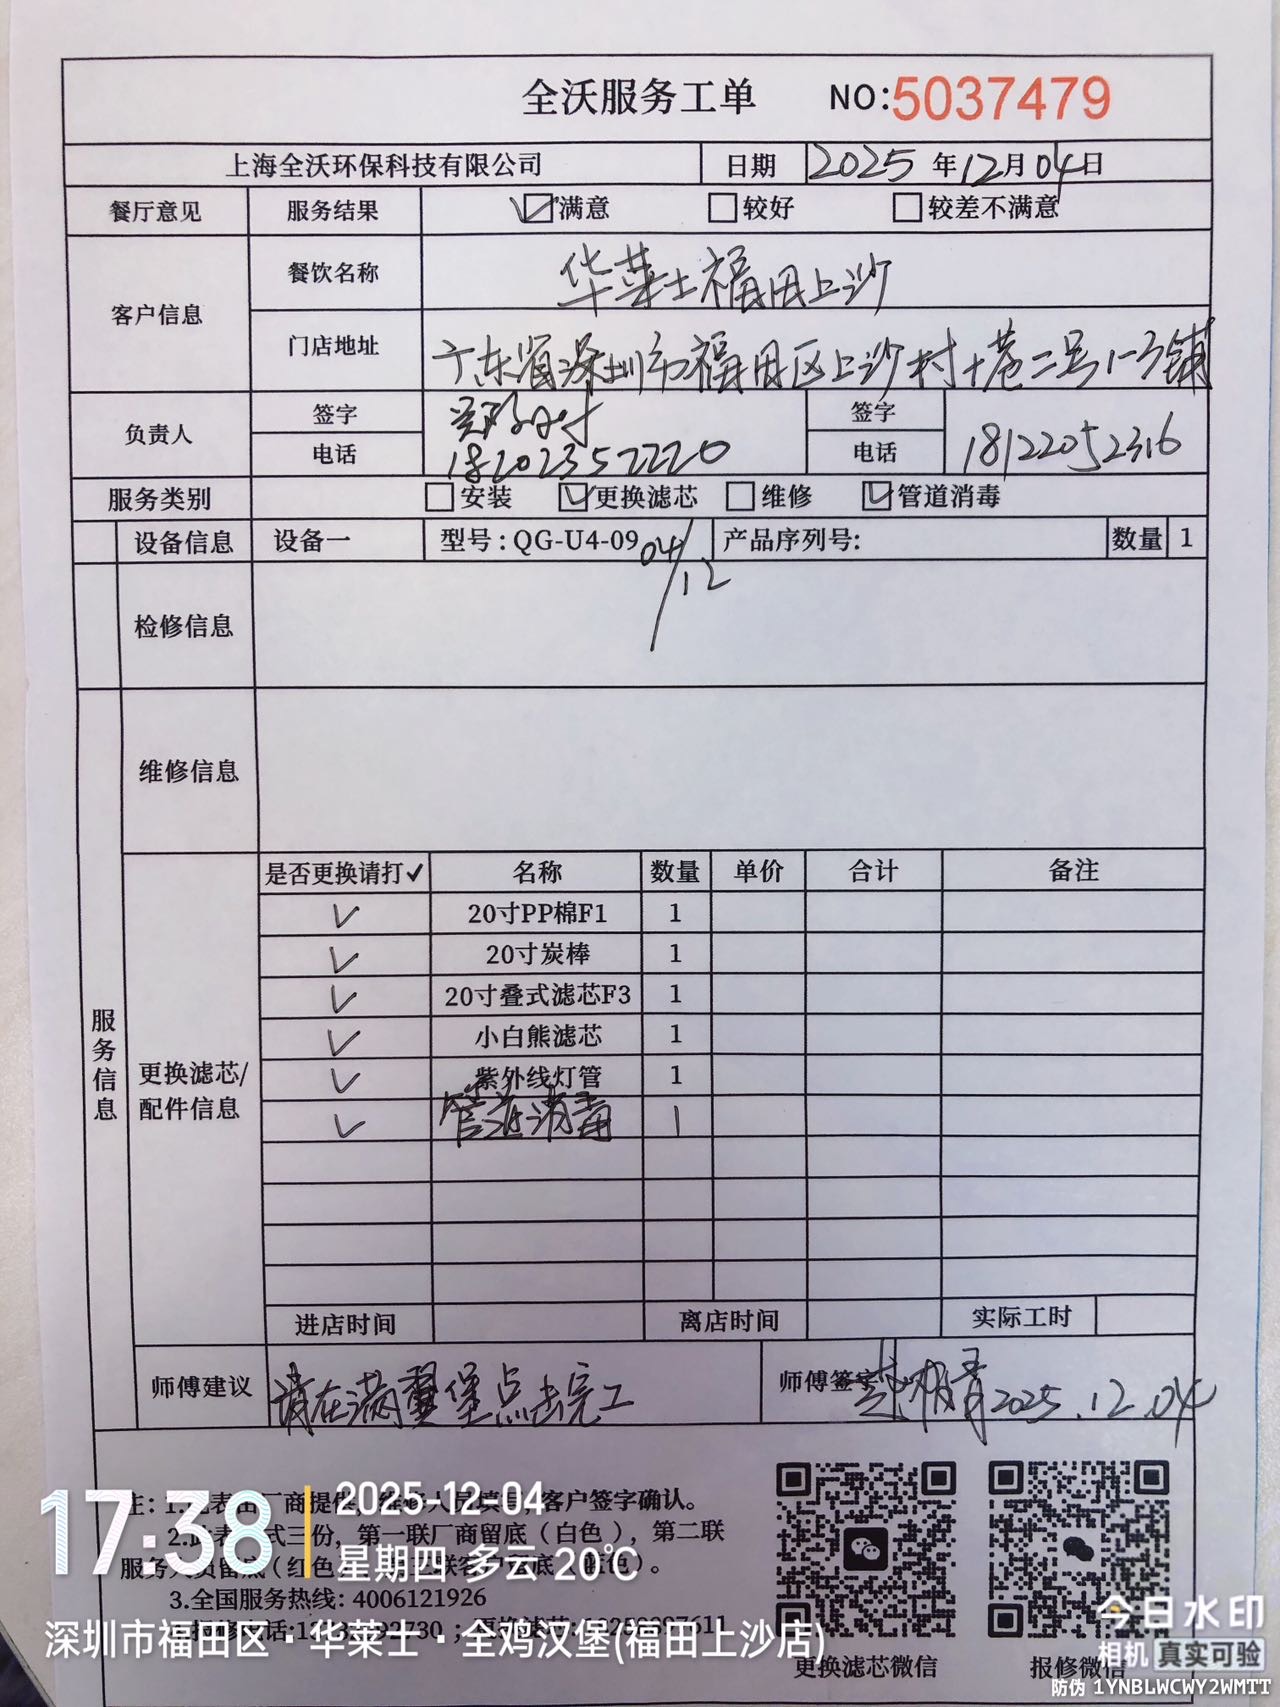 全沃服务工单 NO:5037479
上海全沃环保科技有限公司 日期 2025 年 12 月 04 日
餐厅意见 服务结果 满意 较好 较差不满意
客户信息 餐饮名称 华莱士福田上沙
门店地址 广东省深圳市福田区上沙村十巷二号1-3铺
负责人 签字 签字
电话 18202352220 电话 18122052316
服务类别 安装 更换滤芯 维修 管道消毒
设备信息 设备一 型号:QG-U4-09 产品序列号: 数量 1
04/12
检修信息
维修信息
服务信息
更换滤芯/配件信息
是否更换请打✓ 名称 数量 单价 合计 备注
✓ 20寸PP棉F1 1
✓ 20寸炭棒 1
✓ 20寸叠式滤芯F3 1
✓ 小白熊滤芯 1
✓ 紫外线灯管 1
✓ 管道消毒 1
进店时间 离店时间 实际工时
师傅建议 请在满翼堡点击完工 师傅签字 2025.12.04
注: 客户签字确认。
第一联厂商留底(白色), 第二联
3.全国服务热线: 4006121926
更换滤芯微信 报修微信
17:38 2025-12-04
星期四 多云 20℃
深圳市福田区·华莱士·全鸡汉堡(福田上沙店)
今日水印
相机 真实可验
防伪 1YNBLWCWY2WMTT